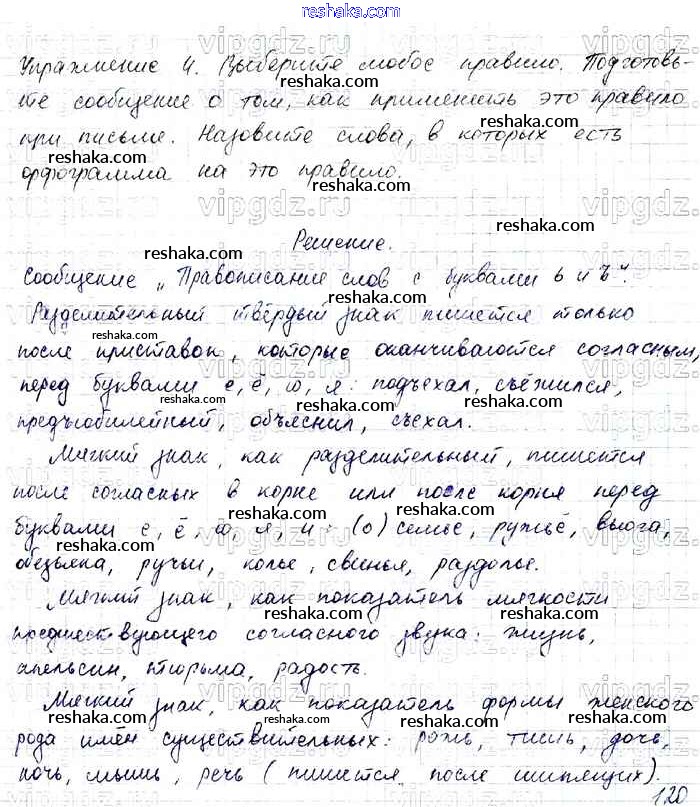 reshaka.com
Упражнение 4. Выберите любое правило. Подготовь-
те сообщение о том, как применять это правило
при письме. Назовите слова, в которых есть
орфограмма на это правило.
Решение.
Сообщение „Правописание слов с буквами ь и ъ".
Разделительный твёрдый знак пишется только
после приставок, которые оканчиваются согласным,
перед буквами е, ё, ю, я: подъехал, съёжился,
предъюбилейный, объяснил, съехал.
Мягкий знак, как разделительный, пишется
после согласных в корне или после корня перед
буквами е, ё, ю, я, и: (о) семье, ружьё, вьюга,
обезьяна, ручьи, колье, свинья, раздолье.
Мягкий знак, как показатель мягкости
предшествующего согласного звука: жизнь,
апельсин, тюрьма, радость.
Мягкий знак, как показатель формы женского
рода имён существительных: рожь, тишь, дочь,
ночь, мышь, речь (пишется после шипящих).
120